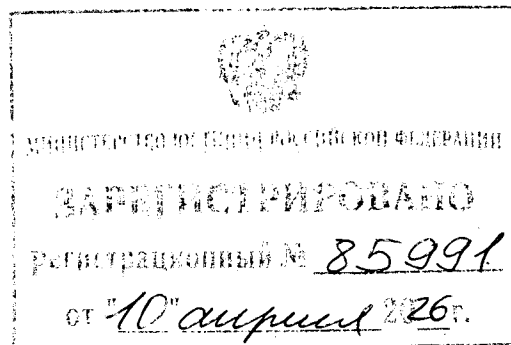 МИНИСТЕРСТВО ЮСТИЦИИ РОССИЙСКОЙ ФЕДЕРАЦИИ
ЗАРЕГИСТРИРОВАНО
Регистрационный № 85991
от "10" апреля 2026 г.